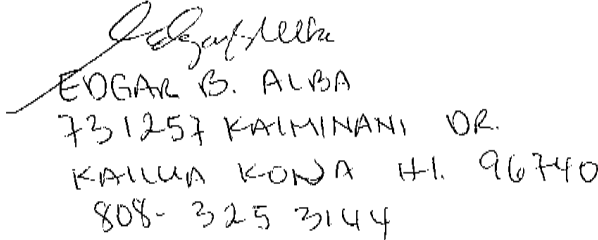 EDGAR B. ALBA
731257 KAIMINANI DR.
KAILUA KONA HI. 96740
808- 325 3144